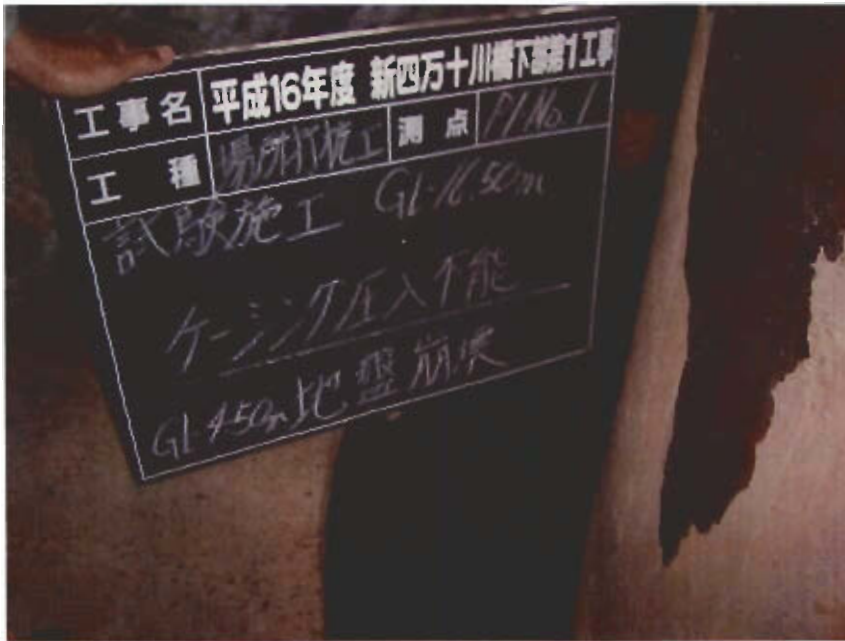 工事名 平成16年度 新四万十川橋下部第1工事
工種 場所打杭工 測点 P1 No.1
試験施工 GL-16.50m
ケーシング圧入不能
GL-4.50m地盤崩壊